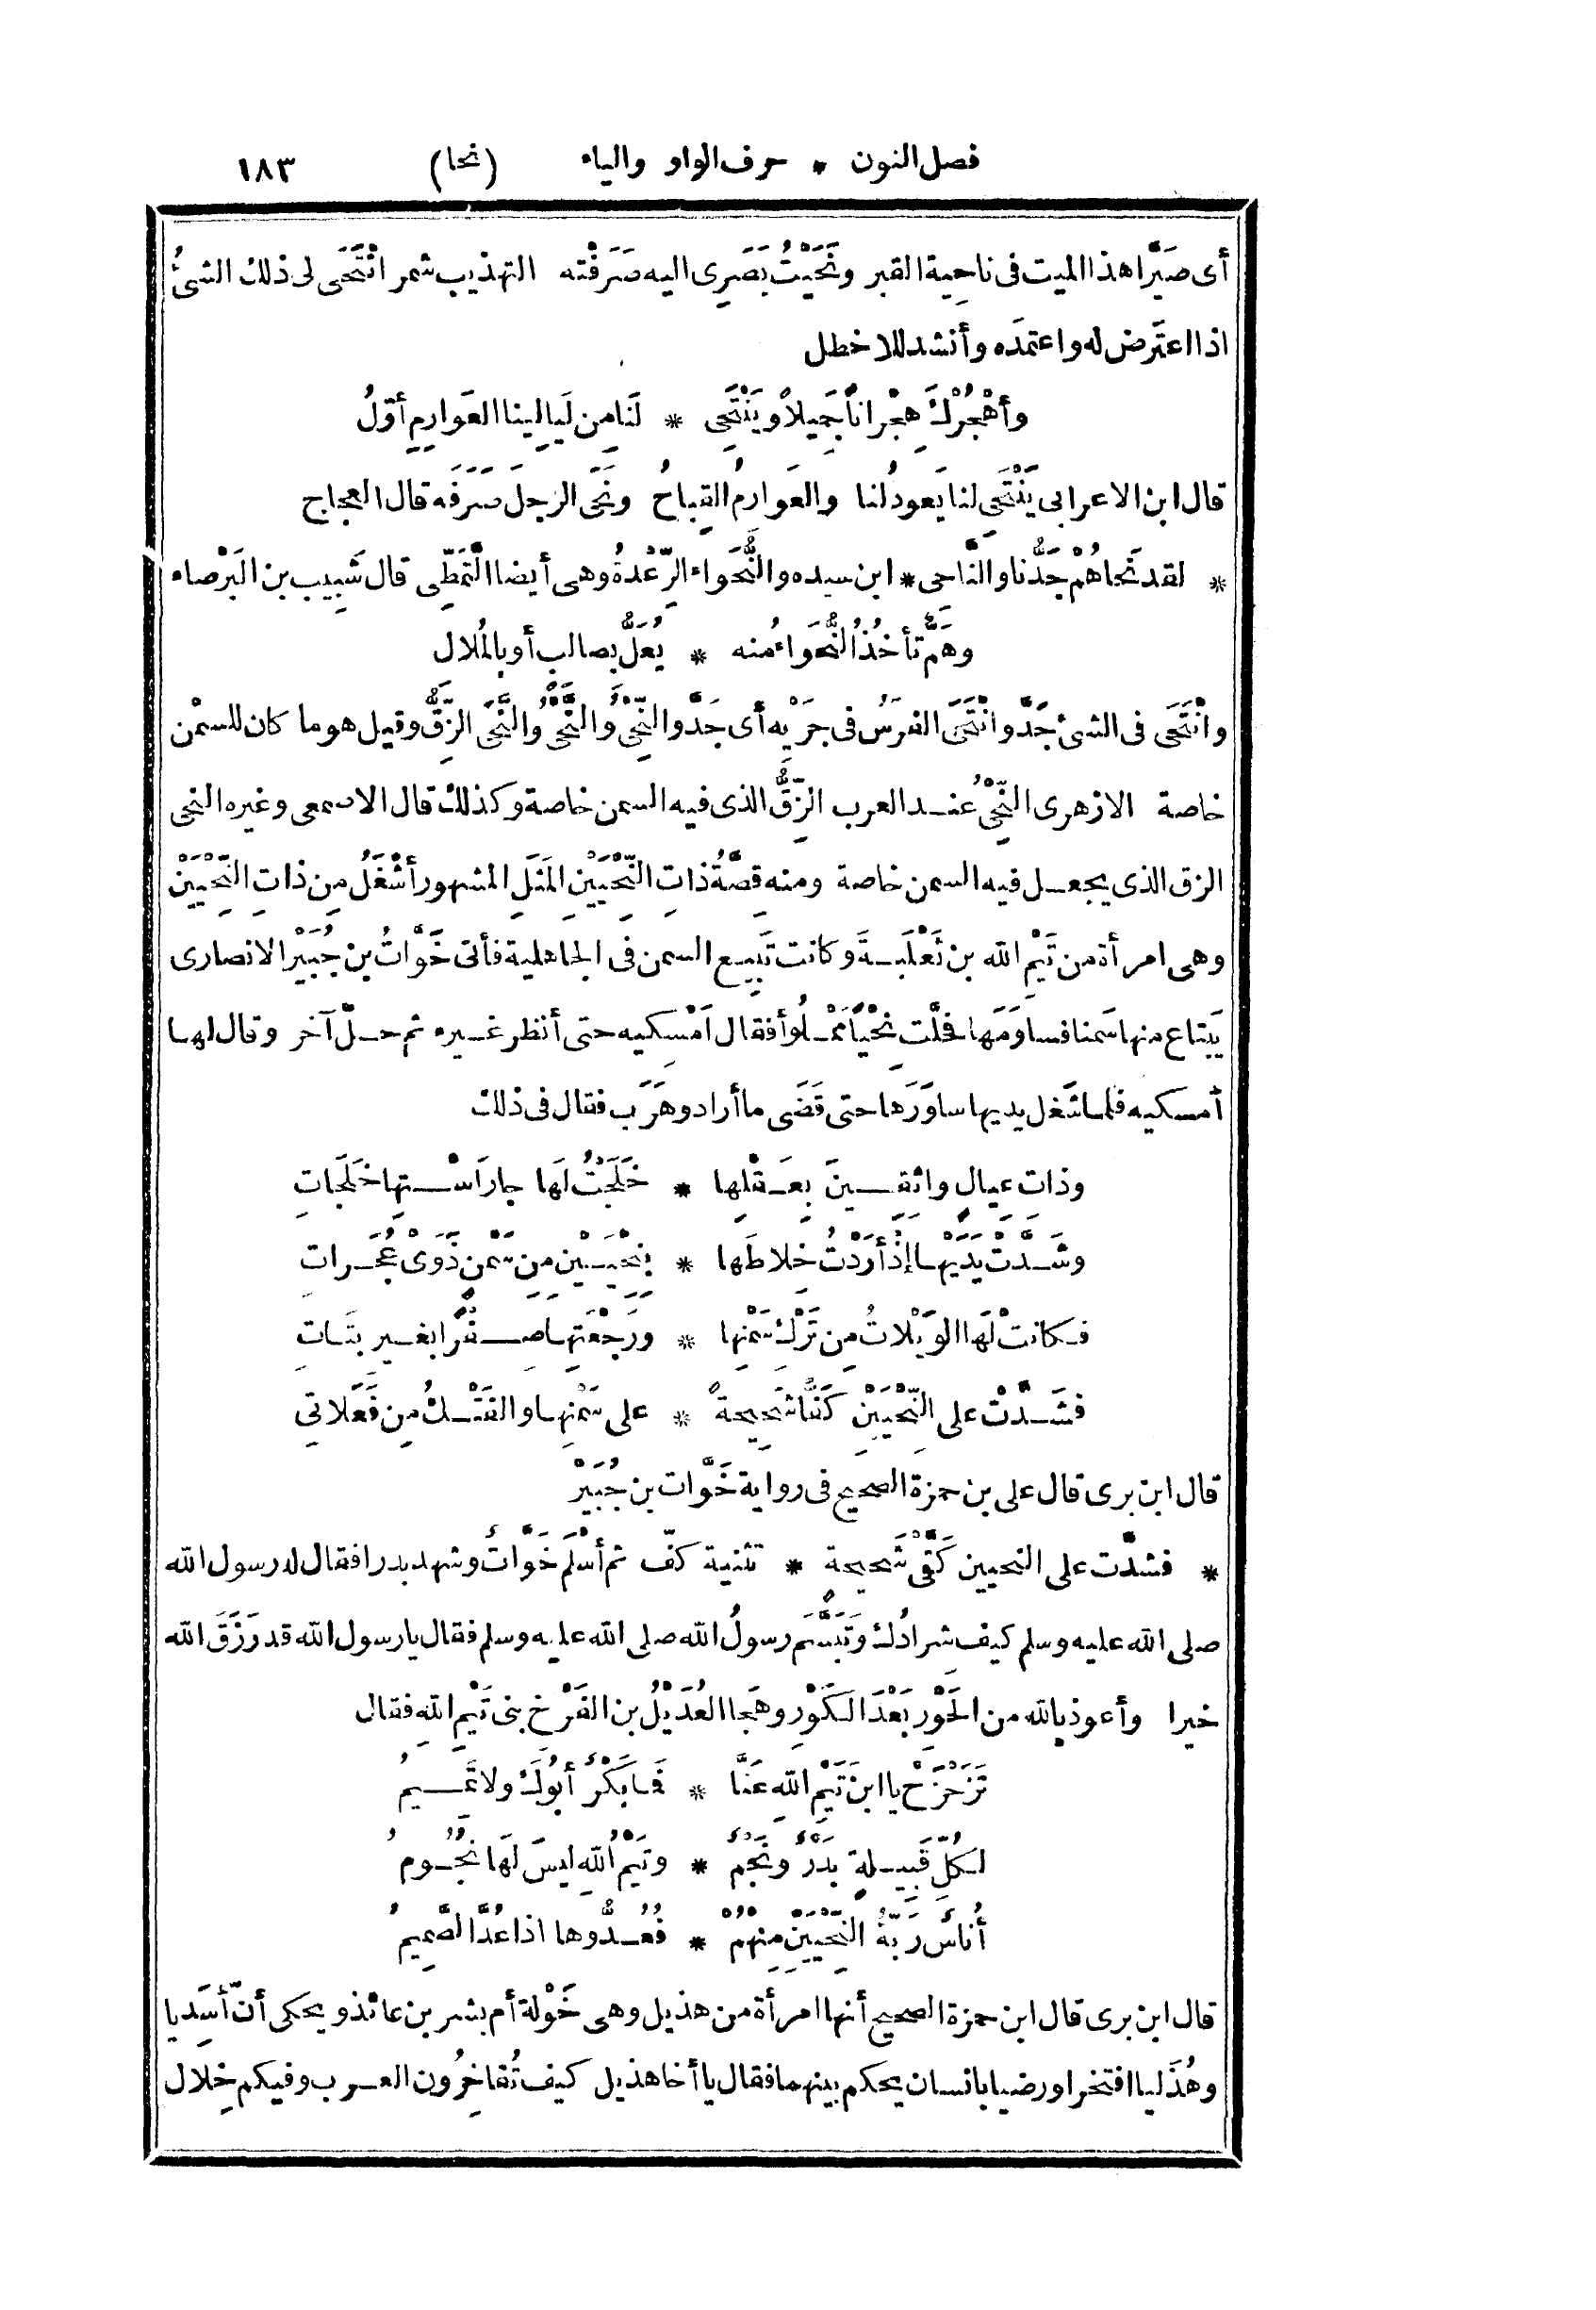 فصل النون * حرف الواو والياء (نحا) ١٨٣
أى صَيَّرا هذا الميت فى ناحِية القبر ونَحَيْتُ بَصَرِى اليه صَرَفْته التهذيب شمر انْتَحَى لى ذلك الشئُ
اذا اعتَرض له واعتمدَه وأنشد للاخطل
وأهْجُرْكَ هِجْراناً جَمِيلاً ويَنْتَحِى * لَنا مِن لَيالِينا العَوارِمِ أوّلُ
قال ابن الاعرابى يَنْتَحِى لنا يَعودُ لنا والعَوارِمُ القِباحُ ونَحَى الرجلَ صَرَفَه قال العجاج
* لقد نَحاهُمْ جَدُّنا والنَّاحِى * ابن سيده والنُّحَواءُ الرِّعْدةُ وهى أيضا التَّمَطِّى قال شَبِيب بن البَرْصاء
وهَمٌّ تأخُذُ النُّحَواءُ منه * يُعَلُّ بصالبٍ أو بالمُلال
وانْتَحَى فى الشئ جَدَّ وانْتَحَى الفرَسُ فى جَرْيِه أى جَدَّ والنِّحْىُ والنَّحْىُ والنَّحَى الزِّقُّ وقيل هو ما كان للسمْن
خاصة الازهرى النِّحْىُ عند العرب الزِّقُّ الذى فيه السمن خاصة وكذلك قال الاصمعى وغيره النحى
الزق الذى يجعل فيه السمن خاصة ومنه قِصَّةُ ذاتِ النِّحْيَيْنِ المَثَلِ المشهور أشْغَلُ مِن ذاتِ النِّحْيَيْنِ
وهى امرأة من تَيْمِ الله بن ثَعْلَبةَ وكانت تَبِيع السمن فى الجاهلية فأتى خَوّاتُ بن جُبَيْر الانصارى
يَبتاع منها سَمنا فساوَمَها فحلَّت نِحْياً مَمْلُوأ فقال اَمْسِكيه حتى أنظر غيره ثم حلّ آخر وقال لها
أمسكيه فلما شَغَل يديها ساوَرَها حتى قَضَى ما أراد وهَرَب فقال فى ذلك
وذاتِ عِيالٍ واثِقِينَ بِعَقْلِها * خَلَجْتُ لَها جارَ اسْتِها خَلَجاتِ
وشَدَّتْ يَدَيْها إذْ أرَدْتُ خِلاطَها * بِنِحْيَيْنِ مِن سَمْنٍ ذَوَىْ عُجَراتِ
فكانتْ لَها الوَيْلاتُ مِن تَرْكِ سَمْنِها * ورَجْعَتِها صِفْرًا بغيرِ بتَاتِ
فشَدَّتْ على النِّحْيَيْنِ كَفًّا شَحِيحةً * على سَمْنِها والفَتْكُ مِن فَعَلاتِى
قال ابن برى قال على بن حمزة الصحيح فى رواية خَوّات بن جُبَيْر
* فشدّت على النحيين كَفَّىْ شَحِيحةٍ * تثنية كفّ ثم أسْلَم خَوّاتٌ وشهد بدرا فقال له رسول الله
صلى الله عليه وسلم كيف شرادُك وتَبَسَّم رسولُ الله صلى الله عليه وسلم فقال يا رسول الله قد رَزَقَ الله
خيرا وأعوذ بالله من الحَوْرِ بَعْدَ الكَوْرِ وهَجا العُدَيْلُ بن الفَرْخِ بنى تَيْمِ اللهِ فقال
تَزَحْزَحْ يا ابنَ تَيْمِ اللهِ عَنَّا * فَما بَكْرٌ أبُوكَ ولا تَمِيمُ
لكُلِّ قَبِيلةٍ بَدْرٌ ونَجْمٌ * وتَيْمُ اللهِ ليسَ لَها نُجُومُ
أُناسٌ رَبّةُ النِّحْيَيْنِ مِنْهُمْ * فُعدُّوها اذا عُدَّ الصَّمِيمُ
قال ابن برى قال ابن حمزة الصحيح أنها امرأة من هذيل وهى خَوْلة أم بشر بن عائذ ويحكى أنّ أسَديا
وهُذَليا افتخرا ورضيا بانسان يحكم بينهما فقال يا أخا هذيل كيف تُفاخِرُون العرب وفيكم خِلال